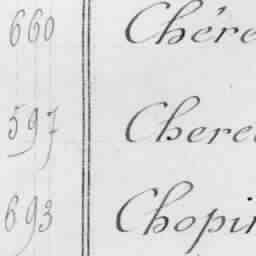 660 Chére
597 Chere
693 Chopi